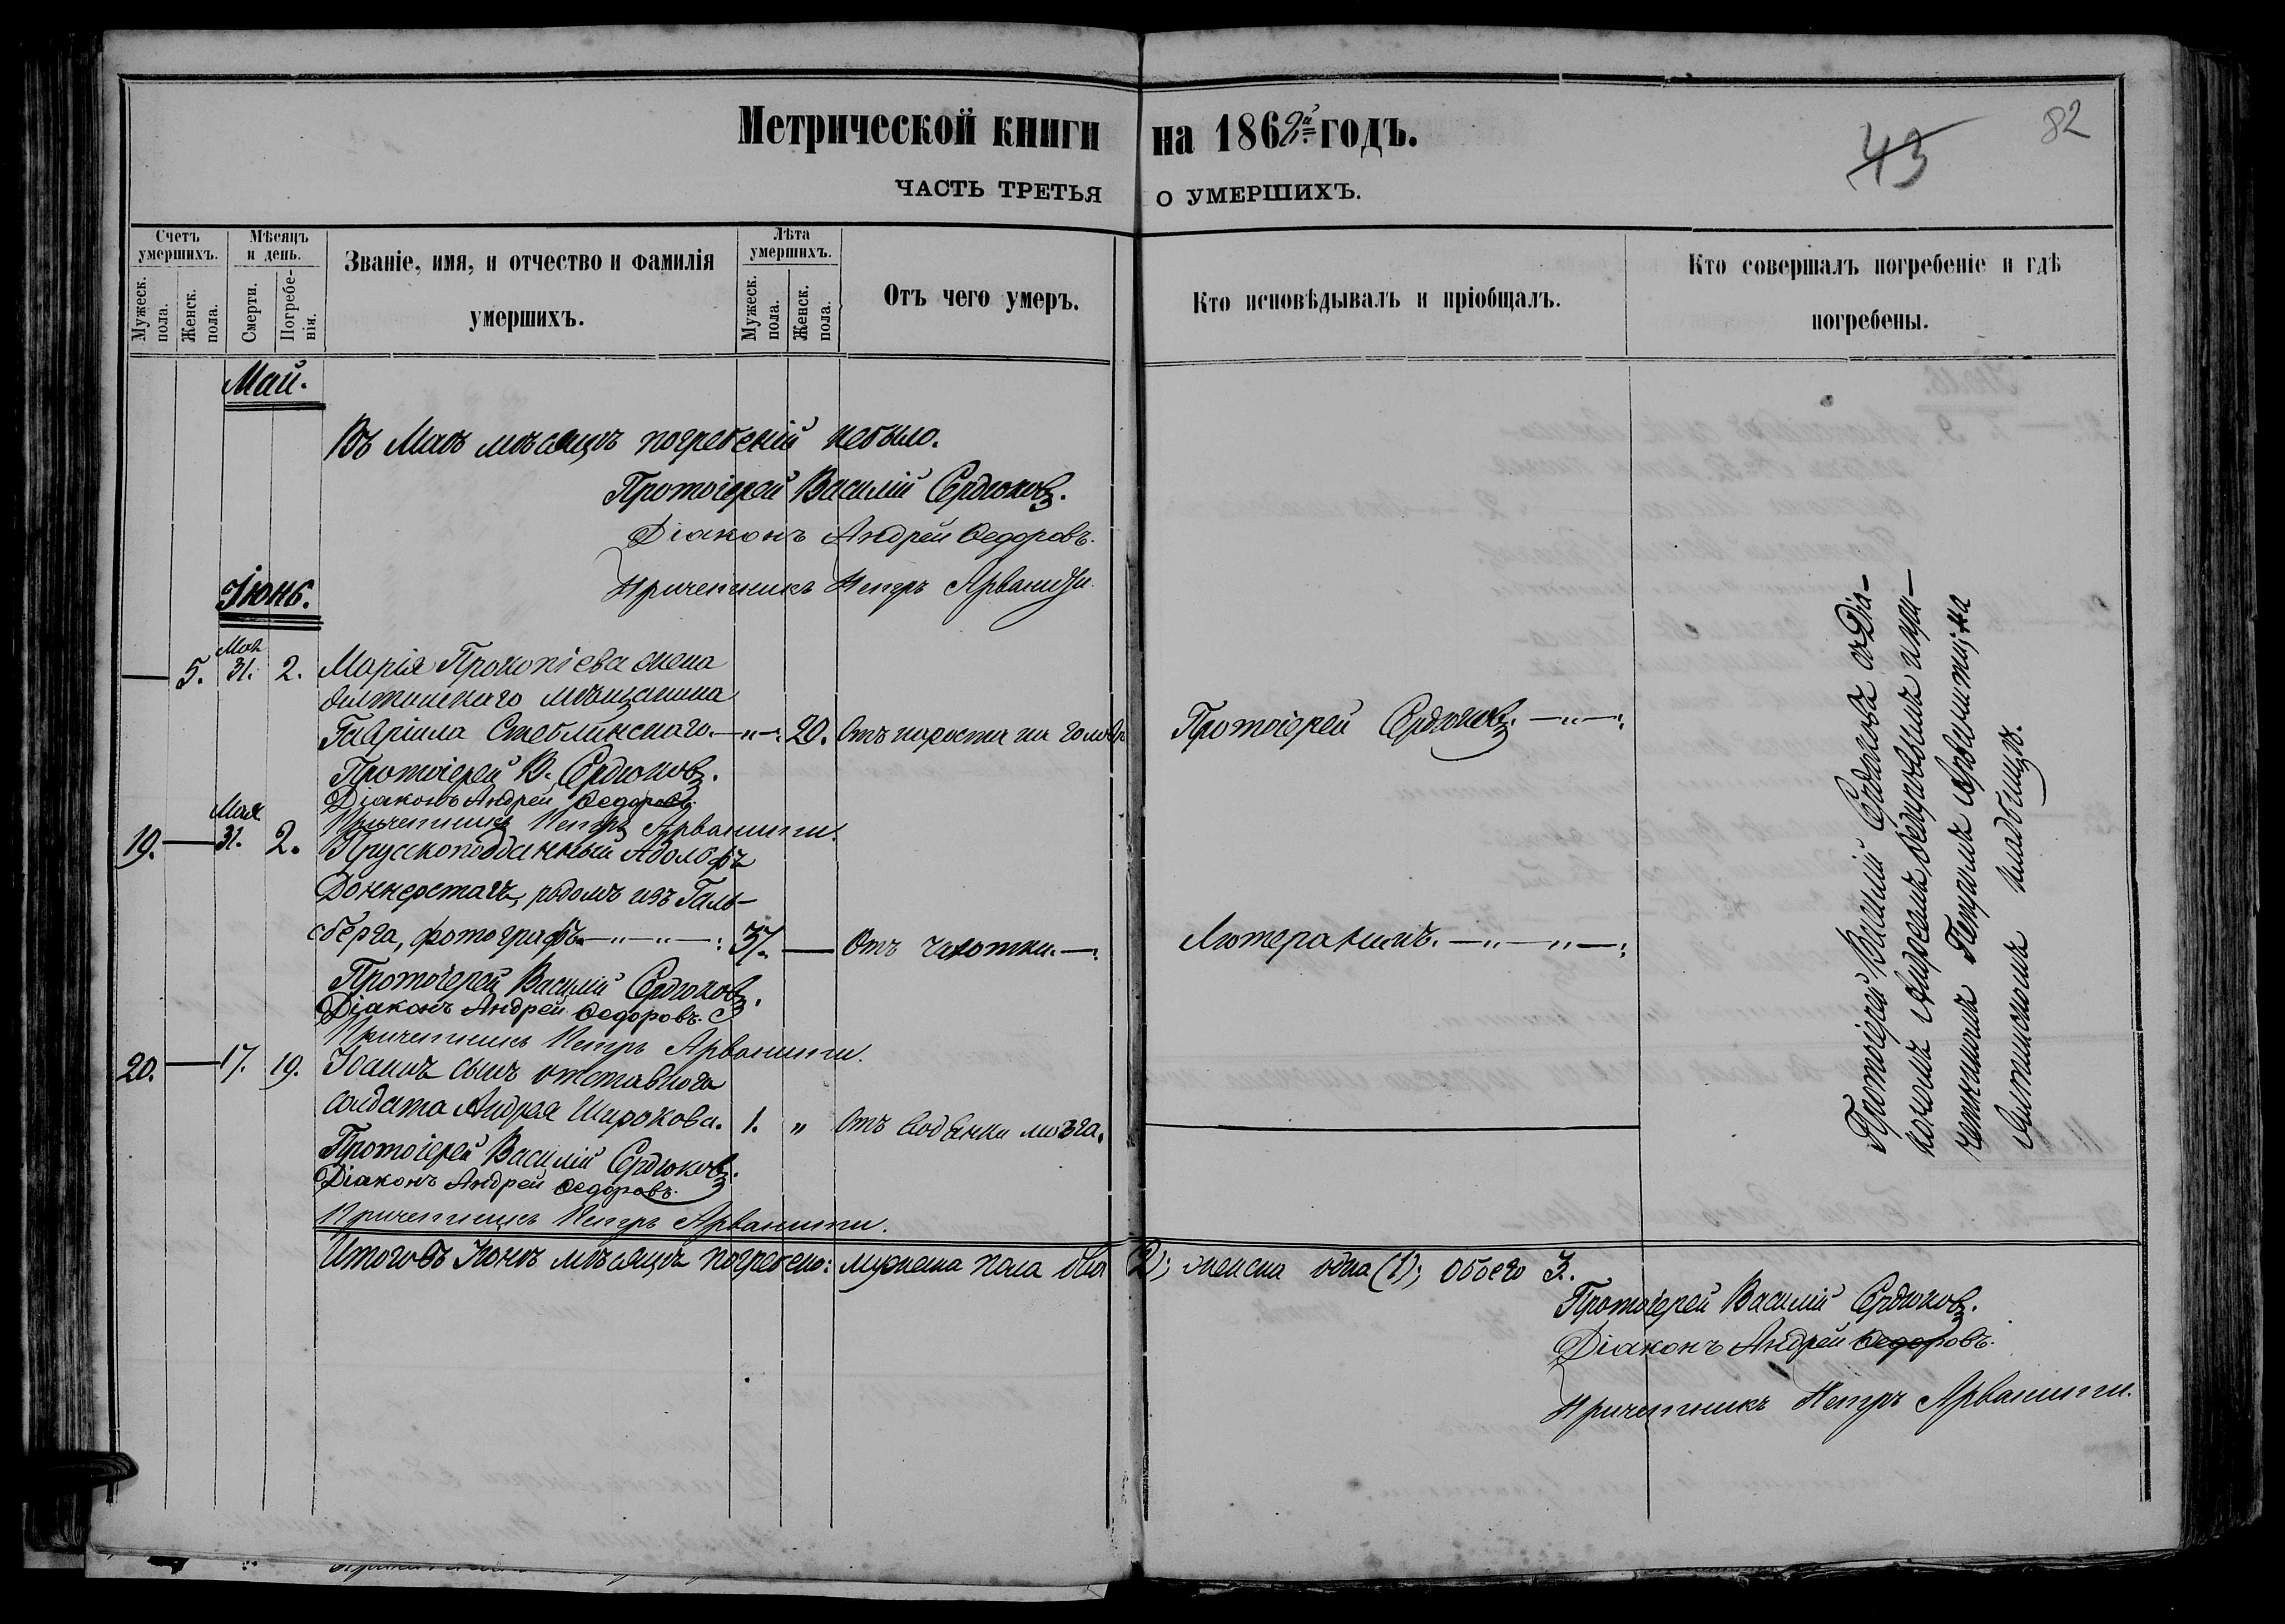 Метрической книги на 1862й годъ.
43
82
ЧАСТЬ ТРЕТЬЯ О УМЕРШИХЪ.
Счетъ умершихъ.
Мужеск. пола.
Женск. пола.
Мѣсяцъ и день.
Смерти.
Погребе-нія.
Званіе, имя, и отчество и фамилія
умершихъ.
Лѣта умершихъ.
Мужеск. пола.
Женск. пола.
Отъ чего умеръ.
Кто исповѣдывалъ и пріобщалъ.
Кто совершалъ погребеніе и гдѣ
погребены.
Май.
Въ Маѣ мѣсяцѣ погребеній небыло.
Протоіерей Василій Сердюковъ.
Діаконъ Андрей Ѳедоровъ.
Причетникъ Петръ Арванити.
Іюнь.
Мая
— 5. 31. 2. Марія Прокопіева жена
мѣщанина
Гавріила Стеблинскаго. —"— 20. Отъ нароста на головѣ Протоіерей Сердюковъ. —"—
Протоіерей В. Сердюковъ.
Діаконъ Андрей Ѳедоровъ.
Причетникъ Петръ Арванити.
Мая
19. — 31. 2. Прусскоподданный Адольфъ
Доннерстагъ, родомъ изъ Галь-
сберга, фотографъ. —"—"— 37. — Отъ чахотки. — Лютеранинъ. —"—"—
Протоіерей Василій Сердюковъ.
Діаконъ Андрей Ѳедоровъ.
Причетникъ Петръ Арванити.
20. — 17. 19. Іоаннъ сынъ отставнаго
солдата Андрея Широкова. 1. " Отъ водянки мозга.
Протоіерей Василій Сердюковъ.
Діаконъ Андрей Ѳедоровъ.
Причетникъ Петръ Арванити.
Протоіерей Василій Сердюковъ съ Діа-
кономъ Андреемъ Ѳедоровымъ и при-
четникомъ Петромъ Арванити, на
кладбищѣ.
Итого въ Іюнѣ мѣсяцѣ погребено: мужеска пола два (2); женска одна (1); обоего 3.
Протоіерей Василій Сердюковъ.
Діаконъ Андрей Ѳедоровъ.
Причетникъ Петръ Арванити.